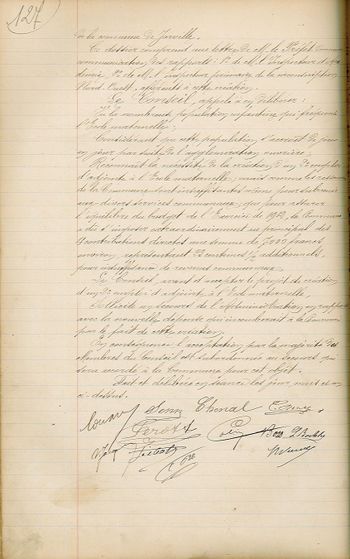 127
à la commune de Joeuville.
Ce dossier comprend une lettre de M. le Préfet
communication des rapports: 1° de M. l'Inspecteur d'Aca
démie, 2° de M. l'inspecteur primaire de la circonscription
Nord-Ouest, afférents à cette création.
Le Conseil, appelé à en délibérer:
Vu la nombreuse population enfantine qui fréquente
l'École maternelle;
Considérant que cette population s'accroît de jour
en jour par suite de l'agglomération ouvrière;
Reconnaît la nécessité de la création d'un 2e emploi
d'adjointe à l'École maternelle, mais comme les ressources
de la Commune sont insuffisantes même pour subvenir
aux divers services communaux, que pour assurer
l'équilibre du budget de l'Exercice de 1912, la Commune
a dû s'imposer extraordinairement au principal des
4 contributions directes une somme de 7.000 francs
environ, représentant centimes additionnels,
pour insuffisance de revenus communaux.
Le Conseil, avant d'accepter le projet de création
d'un 2e emploi d'adjointe à l'École maternelle,
Sollicite un secours de l'administration, en rapport
avec la nouvelle dépense qui incomberait à la Commune
par le fait de cette création.
En conséquence l'acceptation par la majorité des
Membres du Conseil est subordonnée au secours qui
sera accordé à la Commune pour cet objet.
Fait et délibéré en séance les jour, mois et an
ci-dessus.
Thenal
Feroux